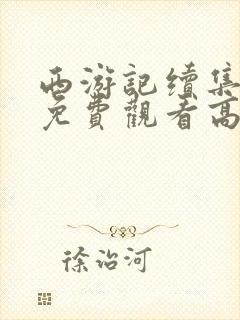 西游記续集
免費觀看高
徐治河